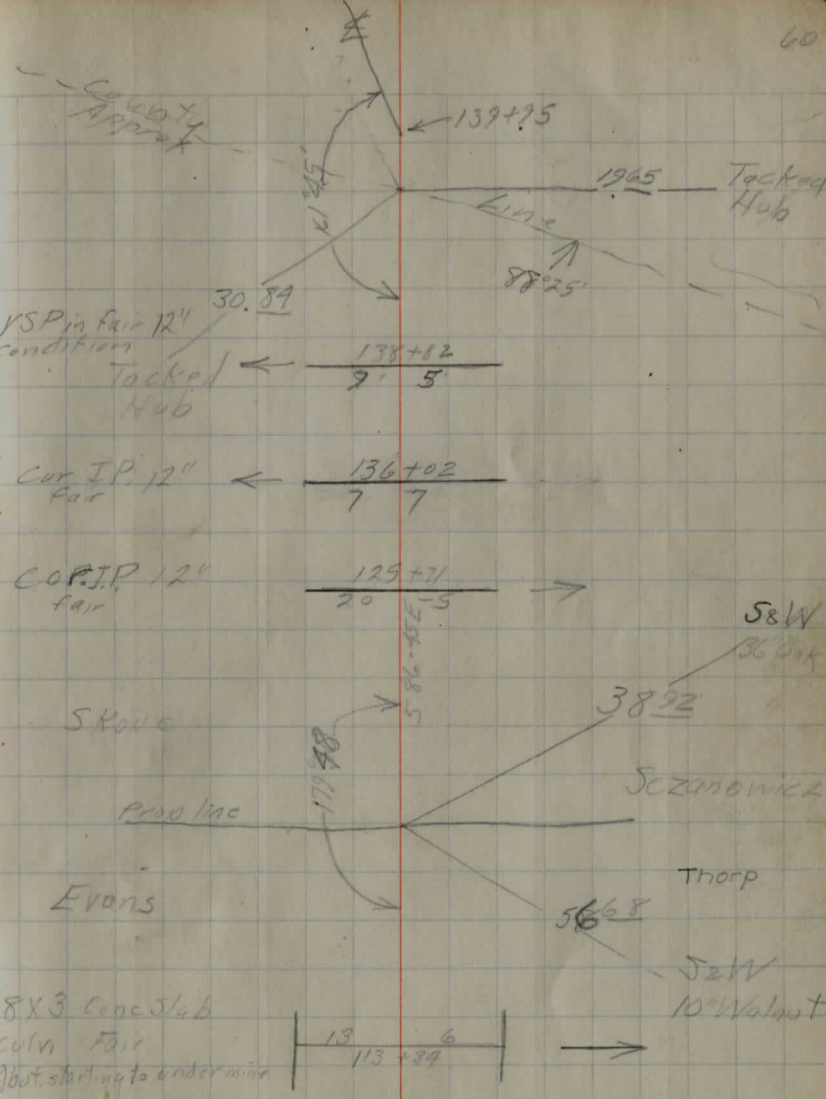 60
County
Approx
139+95
1965
Tacked
Hub
Line
88°25'
30.84
VSP in fair 12"
condition
Tacked
Hub
138+82
9' 5'
Cor. I.P. 12"
fair
136+02
7 7
Cor. I.P. 12"
fair
20 5
S 86-45E
S&W
36" Oak
3892
Skove
179°48
Sczanowicz
Prop line
Thorp
Evans
5668
S&W
10" Walnut
8 X 3 Conc Slab
Culv. Fair
but starting to undermine
13 6
113+84